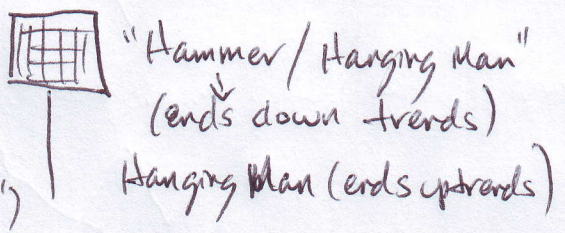 "Hammer / Hanging Man"
(ends down trends)
Hanging Man (ends uptrends)
")